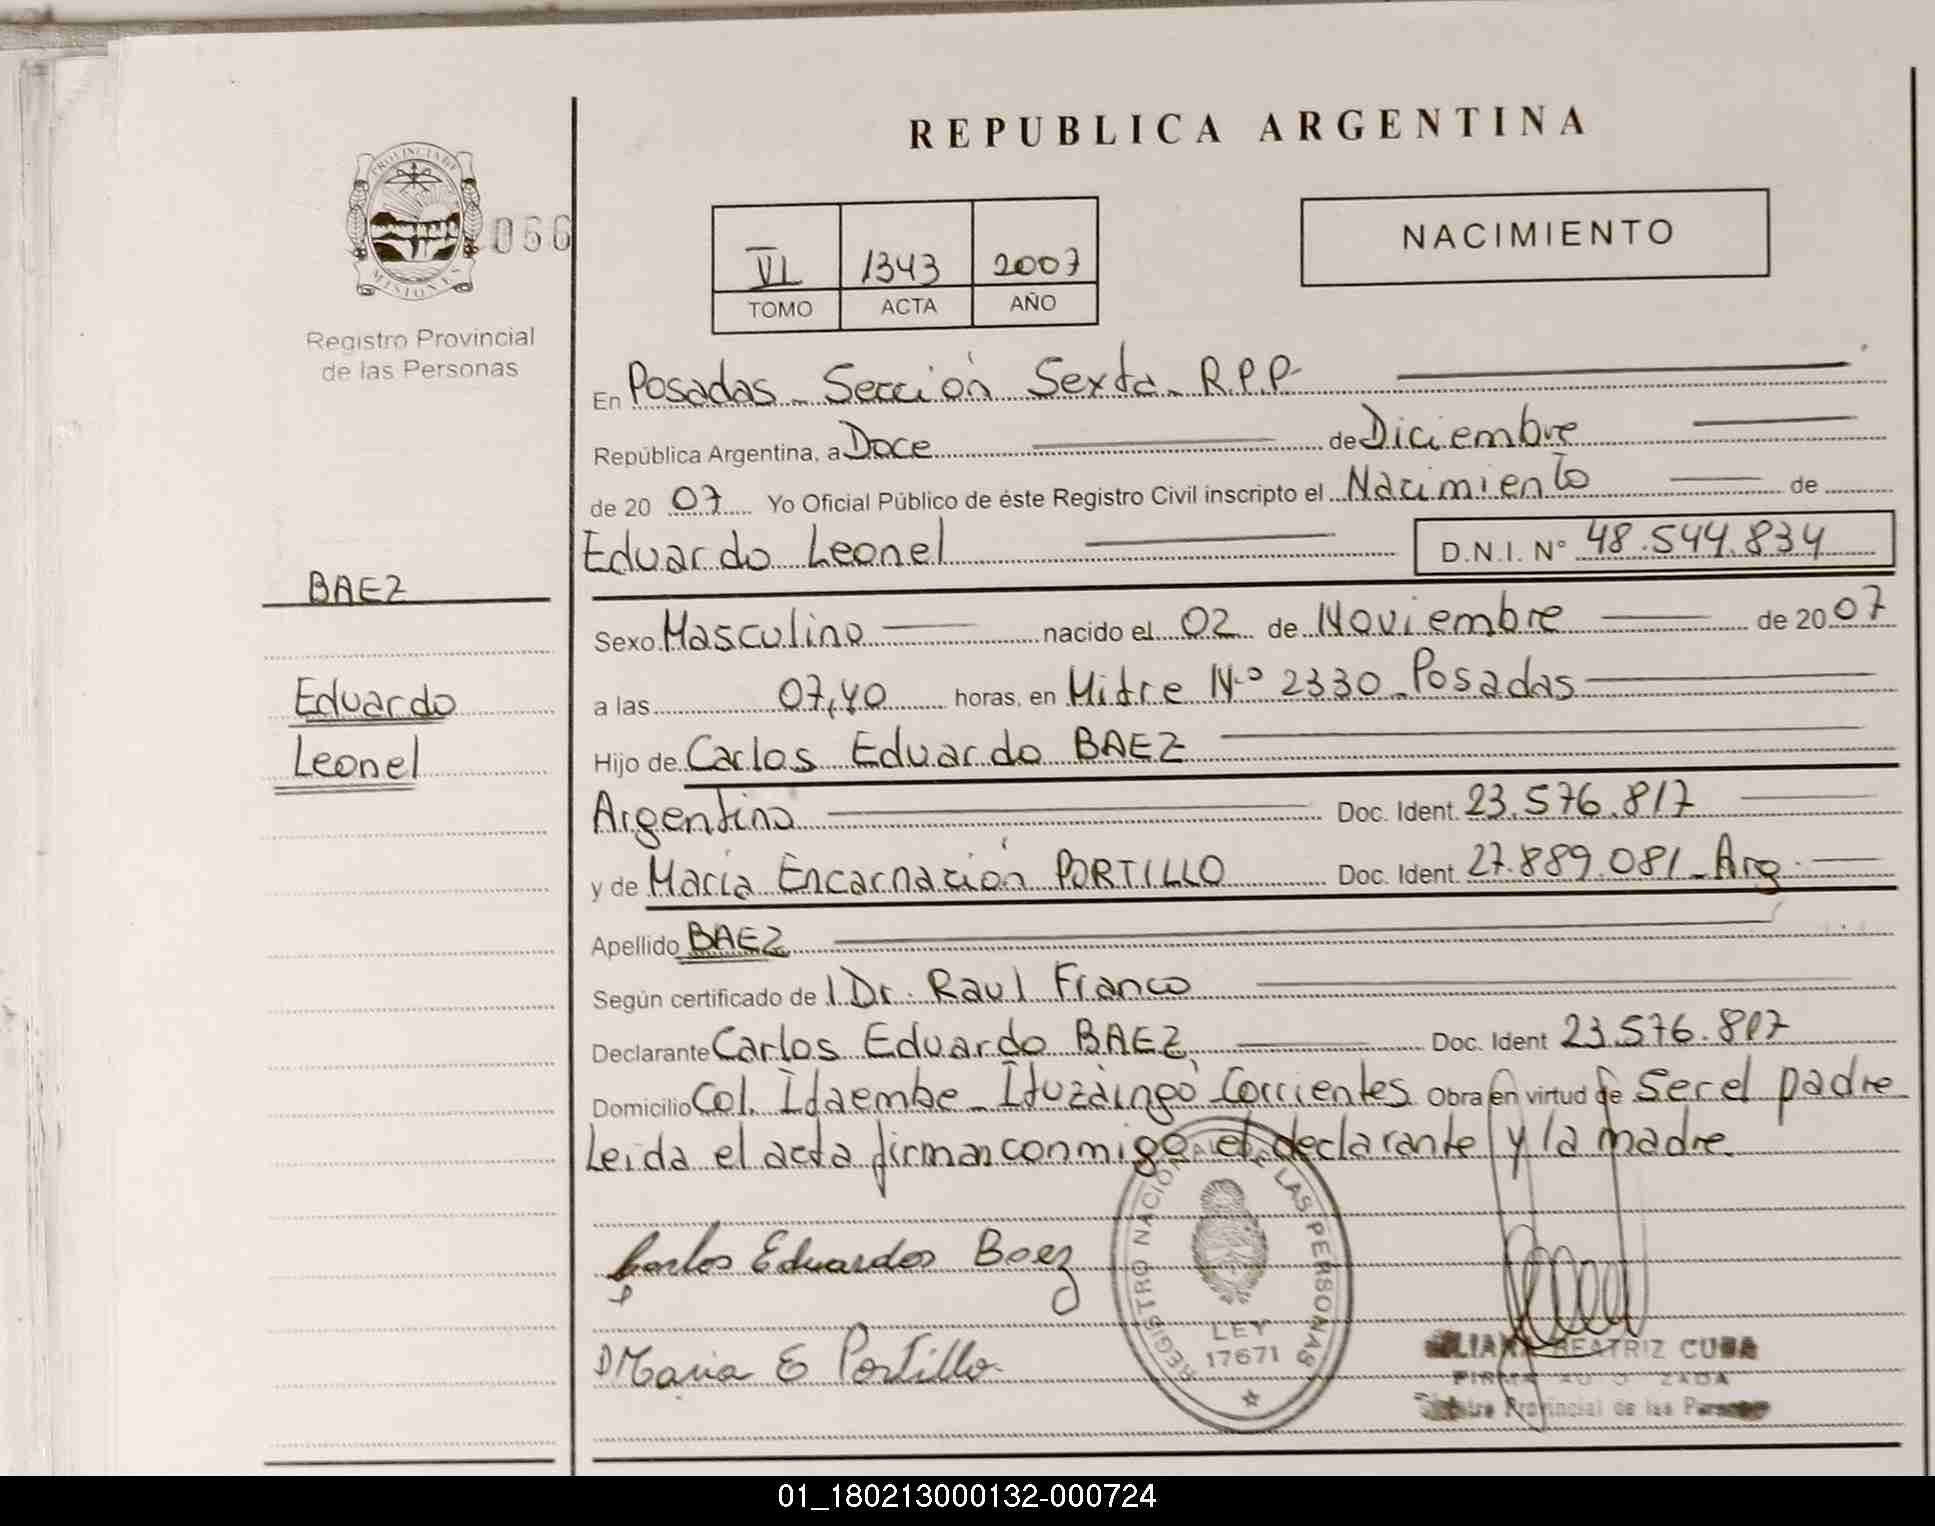 REPUBLICA ARGENTINA
PROVINCIA DE
MISIONES
066
Registro Provincial
de las Personas
VI 1343 2007
TOMO ACTA AÑO
NACIMIENTO
En Posadas - Sección Sexta - R.P.P.
República Argentina, a Doce de Diciembre
de 20 07 Yo Oficial Público de éste Registro Civil inscripto el Nacimiento de
Eduardo Leonel D.N.I. N° 48.544.834
BAEZ
Eduardo
Leonel
Sexo Masculino nacido el 02 de Noviembre de 20 07
a las 07,40 horas, en Mitre Nº 2330 - Posadas
Hijo de Carlos Eduardo BAEZ
Argentino Doc. Ident. 23.576.817
y de María Encarnación PORTILLO Doc. Ident. 27.889.081 - Arg.
Apellido BAEZ
Según certificado de l Dr. Raul Franco
Declarante Carlos Eduardo BAEZ Doc. Ident 23.576.817
Domicilio Col. Ituzaingó Corrientes Obra en virtud de Ser el padre
Leida el acta firman conmigo el declarante y la madre.
Carlos Eduardo Baez
Maria E Portillo
REGISTRO NACIONAL LAS PERSONAS
LEY
17671
BEATRIZ
Provincial de las
01_180213000132-000724